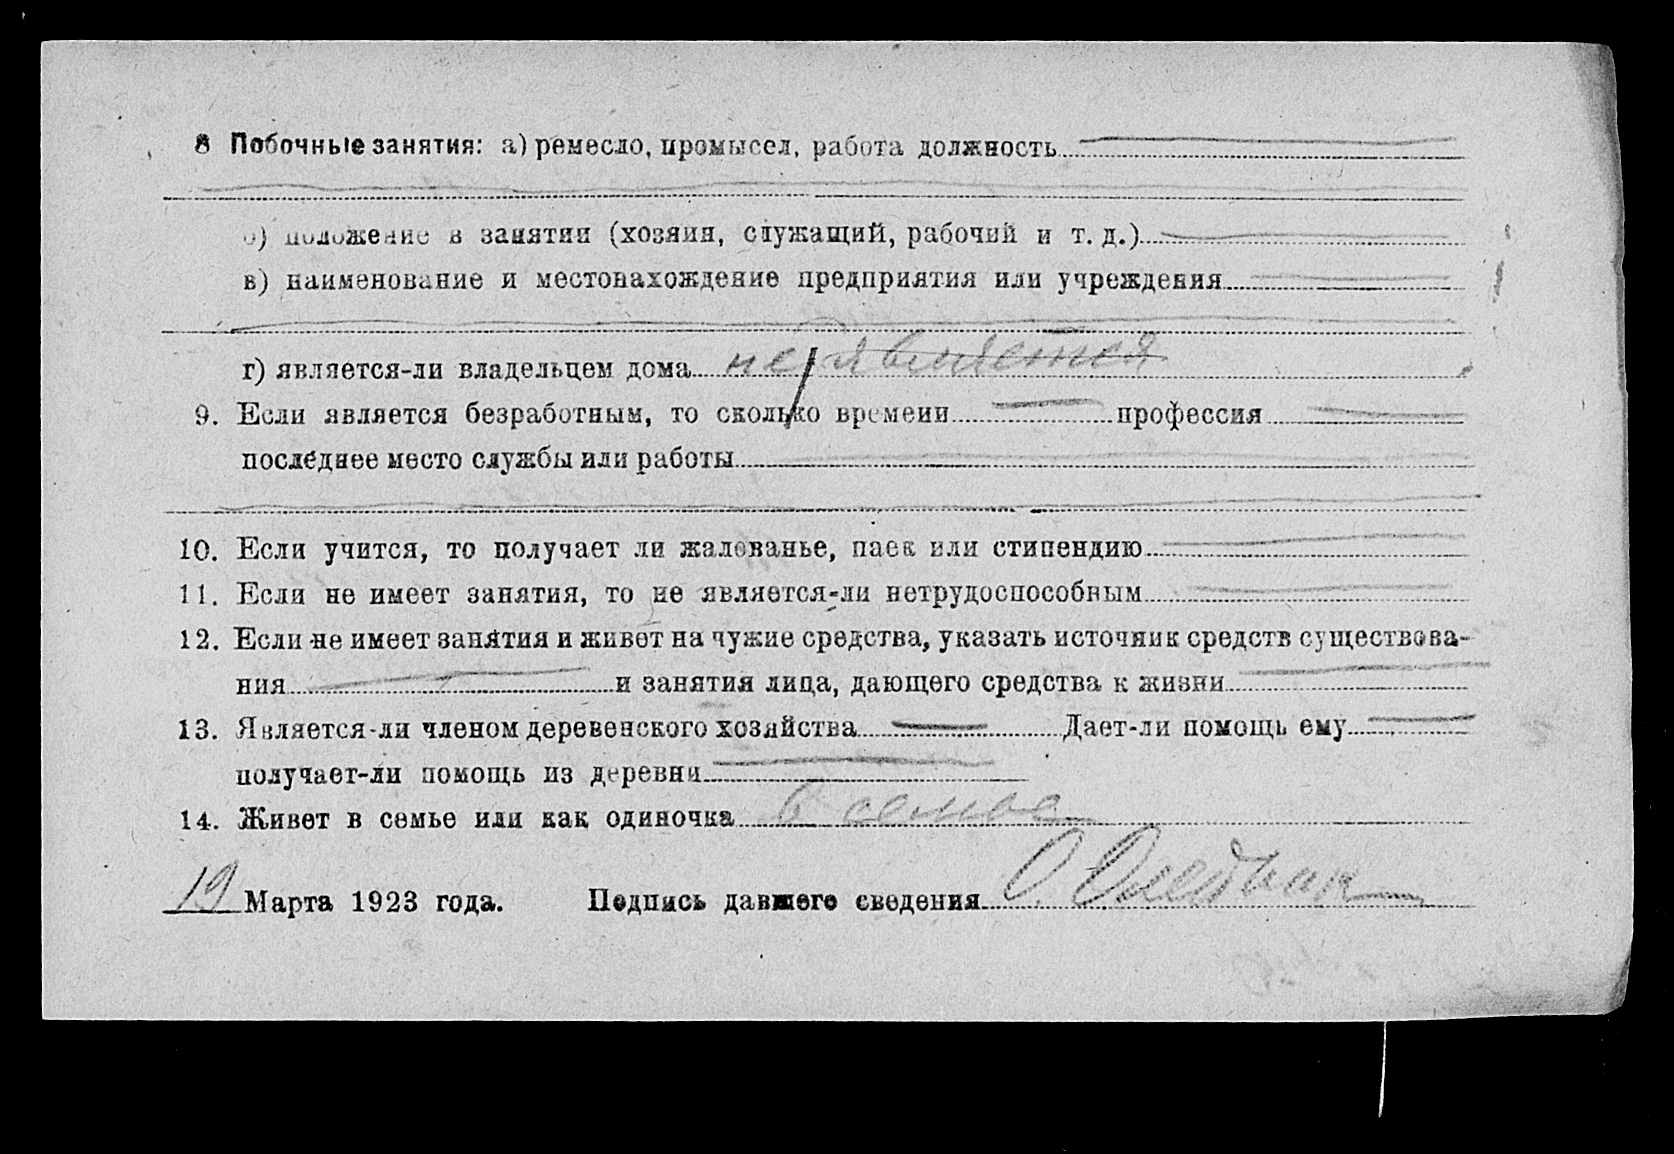 8 Побочные занятия: а) ремесло, промысел, работа должность
б) положение в занятии (хозяин, служащий, рабочий и т. д.)
в) наименование и местонахождение предприятия или учреждения
г) является-ли владельцем дома не является
9. Если является безработным, то сколько времени профессия
последнее место службы или работы
10. Если учится, то получает ли жалованье, паек или стипендию
11. Если не имеет занятия, то не является-ли нетрудоспособным
12. Если не имеет занятия и живет на чужие средства, указать источник средств существова-
ния и занятия лица, дающего средства к жизни
13. Является-ли членом деревенского хозяйства Дает-ли помощь ему
получает-ли помощь из деревни
14. Живет в семье или как одиночка в семье
19 Марта 1923 года. Подпись давшего сведения О.